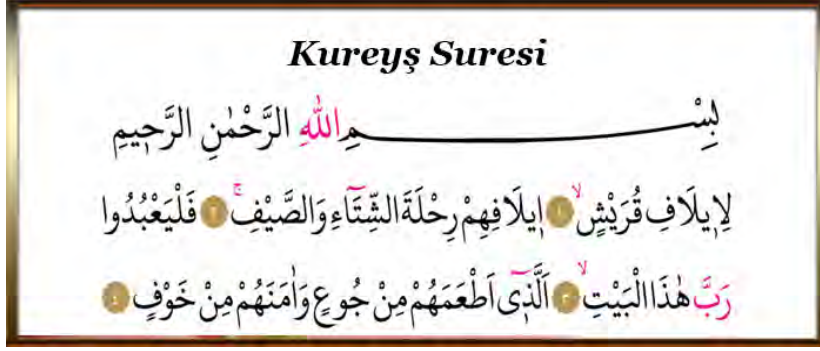 Kureyş Suresi
بِسْــــــــــــــمِ اللّٰهِ الرَّحْمٰنِ الرَّح۪يمِ
لِا۪يلَافِ قُرَيْشٍۙ ﴿١﴾ ا۪يلَافِهِمْ رِحْلَةَ الشِّتَٓاءِ وَالصَّيْفِۚ ﴿٢﴾ فَلْيَعْبُدُوا
رَبَّ هٰذَا الْبَيْتِۙ ﴿٣﴾ اَلَّذ۪ٓي اَطْعَمَهُمْ مِنْ جُوعٍ وَاٰمَنَهُمْ مِنْ خَوْفٍ ﴿٤﴾